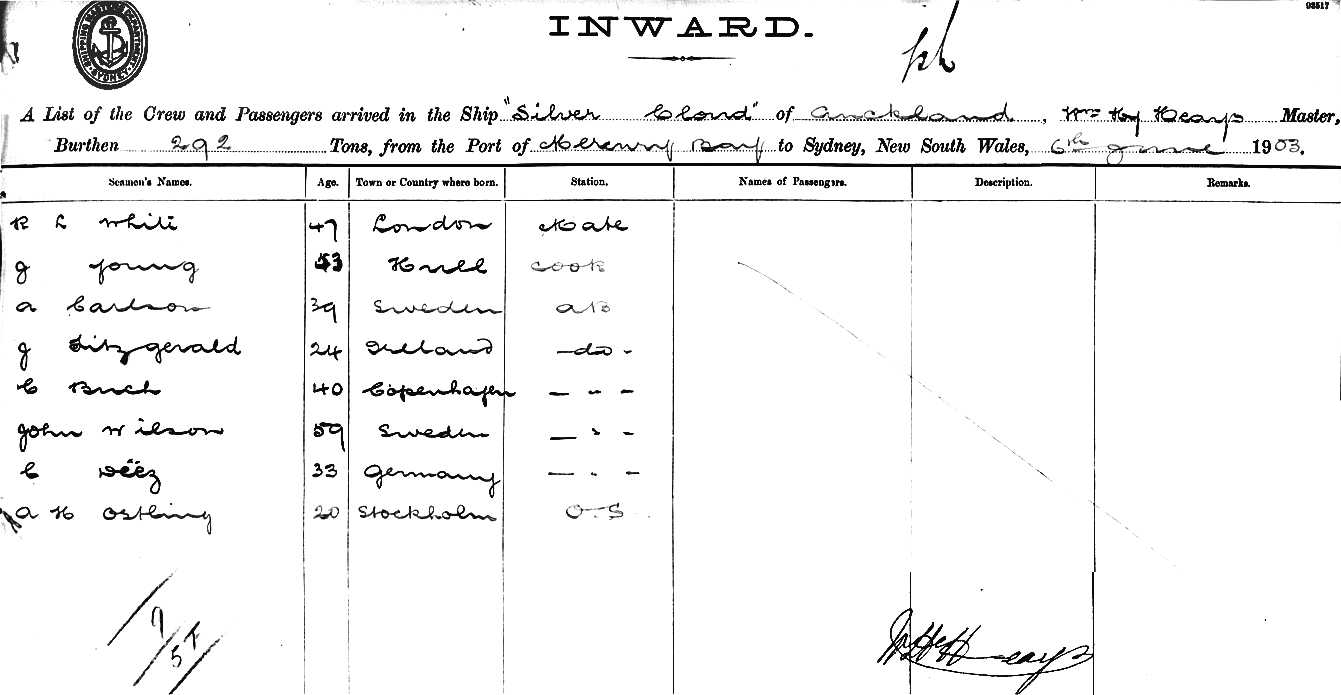 93517
SHIPPING MASTERS DEPARTMENT SYDNEY
INWARD.
A List of the Crew and Passengers arrived in the Ship "Silver Cloud" of Auckland, Wm Hy Heays Master,
Burthen 292 Tons, from the Port of Mercury Bay to Sydney, New South Wales, 6th June 1903.
Seamen's Names. Age. Town or Country where born. Station. Names of Passengers. Description. Remarks.
R L White 47 London Mate
J Young 53 Hull Cook
A Carlson 39 Sweden AB
J Fitzgerald 24 Ireland - do -
C Buch 40 Copenhagen - " -
John Wilson 59 Sweden - " -
C Dëëz 33 Germany - " -
A H Ostling 20 Stockholm O.S
W Hy Heays